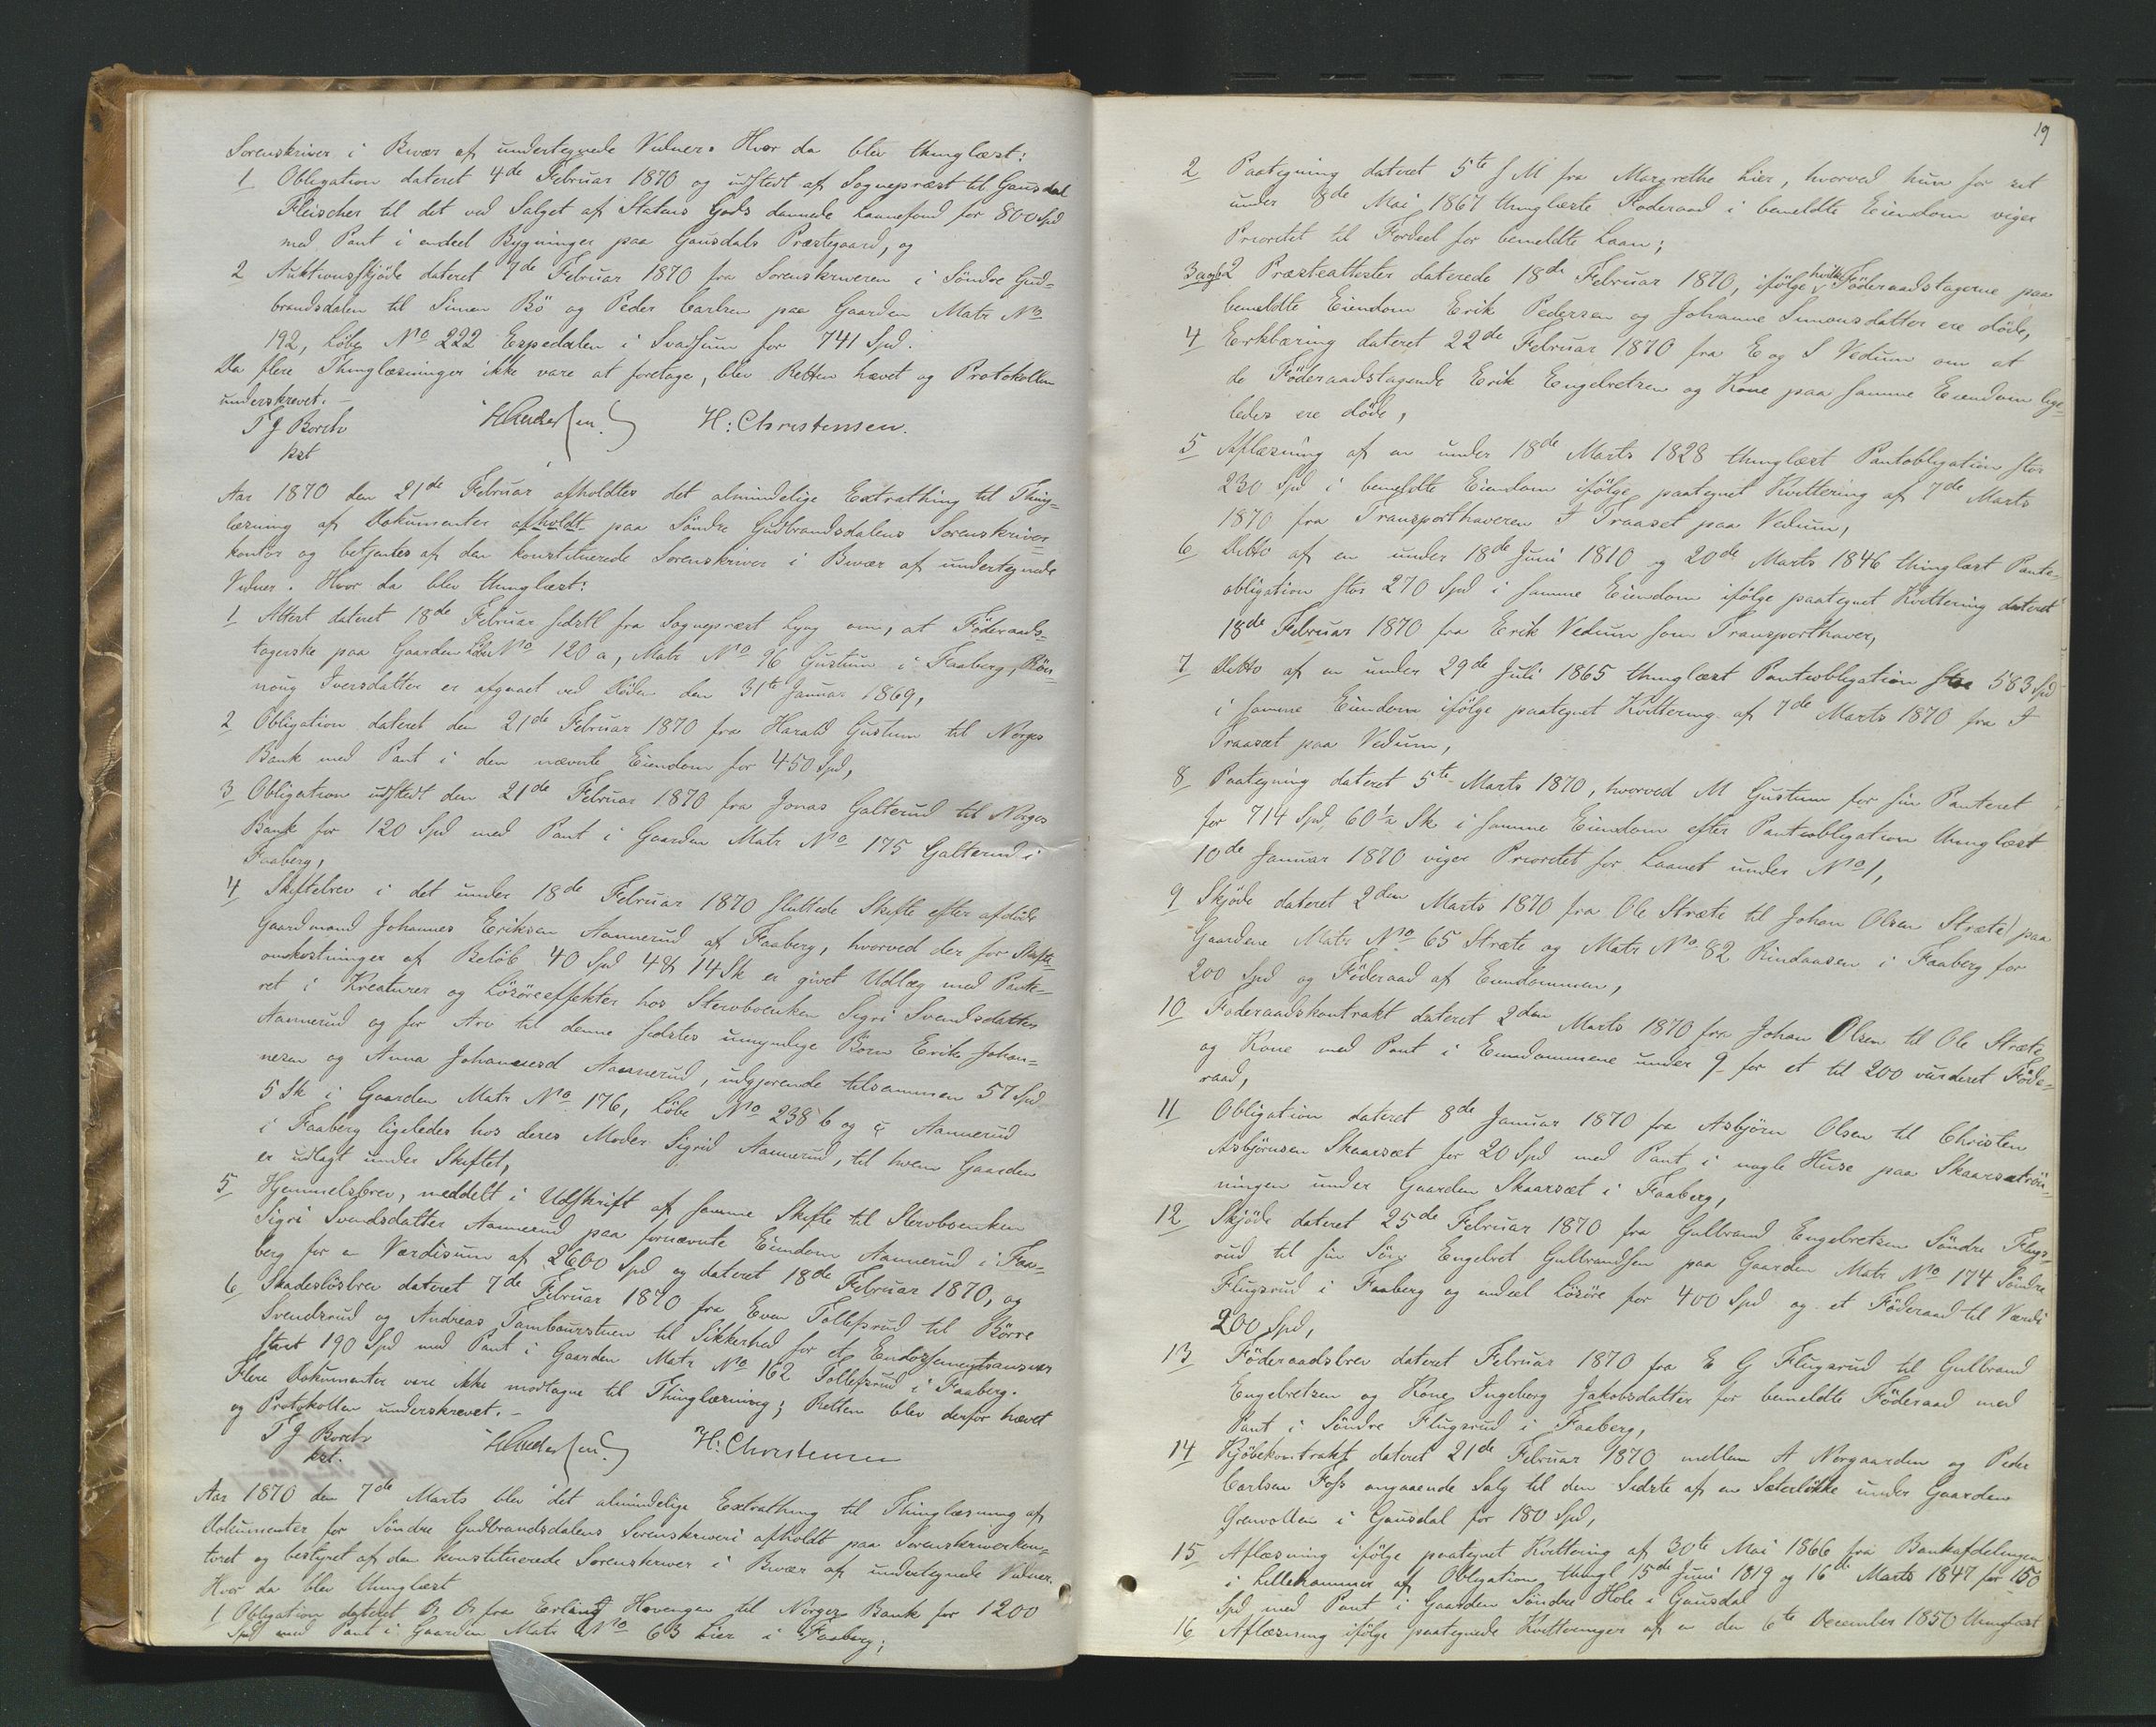 Sorenskriver i Bivær af undertegnede Vidner. Hvor da blev thinglæst:
1 Obligation dateret 4de Februar 1870 og udstedt af Sognepræst til Gausdal
Fleischer til det ved Salget af Statens Gods dannede Laanefond for 800 Spd
med Pant i endeel Bygninger paa Gausdals Præstegaard, og
2 Auktionsskjøde dateret 7de Februar 1870 fra Sorenskriveren i Söndre Gud-
brandsdalen til Simen Bö og Peder Carlsen paa Gaarden Matr No
192, Löbe No 222 Espedalen i Svadsum for 741 Spd.
Da flere Thinglæsninger ikke vare at foretage, blev Retten hævet og Protokollen
underskrevet. -
T J Borch H. Christensen.
kst
Aar 1870 den 21de Februar afholdtes det almindelige Extrathing til Thing-
læsning af Dokumenter afholdt paa Söndre Gudbrandsdalens Sorenskriver-
kontor og betjentes af den konstituerede Sorenskriver i Bivær af undertegnede
Vidner. Hvor da blev thinglæst:
1 Attest dateret 18de Februar sidstl fra Sognepræst Lyng om, at Föderaads-
tagerske paa Gaarden Löbe No 120 a, Matr No 96 Gustum i Faaberg, Rön-
noug Iversdatter er afgaaet ved Döden den 31te Januar 1869,
2 Obligation dateret den 21de Februar 1870 fra Harald Gustum til Norges
Bank med Pant i den nævnte Eiendom for 450 Spd,
3 Obligation udstedt den 21de Februar 1870 fra Jonas Galterud til Norges
Bank for 120 Spd med Pant i Gaarden Matr No 175 Galterud i
Faaberg,
4 Skiftebrev i det under 18de Februar 1870 sluttede Skifte efter afdöde
Gaardmand Johannes Eriksen Aannerud af Faaberg, hvorved der for Skifte-
omkostninger af Beløb 40 Spd 4 ₰ 14 Sk er givet Udlæg med Pante-
ret i Kreaturer og Lösöreeffekter hos Stervboenken Sigri Svendsdatter
Aannerud og for Arv til denne sidstes umyndige Börn Erik Johan-
nesen og Anna Johannesd Aannerud, udgjørende tilsammen 57 Spd
5 Sk i Gaarden Matr No 176, Löbe No 238 b og c Aannerud
i Faaberg ligeledes hos deres Moder Sigrid Aannerud, til hvem Gaarden
er udlagt under Skiftet,
5 Hjemmelsbrev, meddelt i Udskrift af samme Skifte til Stervboenken
Sigri Svendsdatter Aannerud paa fornævnte Eiendom Aannerud i Faa-
berg for en Værdisum af 2600 Spd og dateret 18de Februar 1870, og
6 Skadeslösbrev dateret 7de Februar 1870 fra Even Tollefsrud til Börre
Svendsrud og Andreas Tamboursstuen til Sikkerhed for et Endossementsansvar
stort 190 Spd med Pant i Gaarden Matr No 162 Tollefsrud i Faaberg.
Flere Dokumenter vare ikke modtagne til Thinglæsning; Retten blev derfor hævet
og Protokollen underskrevet. -
T J Borch H: Christensen
kst.
Aar 1870 den 7de Marts blev det almindelige Extrathing til Thinglæsning af
Dokumenter for Söndre Gudbrandsdalens Sorenskriveri afholdt paa Sorenskriverkon-
toret og bestyret af den konstituerede Sorenskriver i Bivær af undertegnede Vidner.
Hvor da blev thinglæst
1 Obligation dateret D. D. fra Erland Hovengen til Norges Bank for 1200
Spd med Pant i Gaarden Matr No 63 Lier i Faaberg;
19
2 Paategning dateret 5te s M fra Margrethe Lier, hvorved hun for sit
under 8de Mai 1867 thinglæste Föderaad i bemeldte Eiendom viger
Prioritet til Fordeel for bemeldte Laan;
3 a og b 2 Præsteattester daterede 18de Februar 1870, ifölge hvilke Föderaadstagerne paa
bemeldte Eiendom Erik Pedersen og Johanne Simonsdatter ere döde,
4 Erklæring dateret 22de Februar 1870 fra E og S Vedum om at
de Föderaadstagende Erik Engebretsen og Kone paa samme Eiendom lige-
ledes ere döde,
5 Aflæsning af en under 18de Marts 1828 thinglæst Pantobligation stor
230 Spd i bemeldte Eiendom ifölge paategnet Kvittering af 7de Marts
1870 fra Transporthaveren I Traaset paa Vedum,
6 Ditto af en under 18de Juni 1810 og 20de Marts 1846 thinglæst Pante-
obligation stor 270 Spd i samme Eiendom ifölge paategnet Kvittering dateret
18de Februar 1870 fra Erik Vedum som Transporthaver,
7 Ditto af en under 29de Juli 1865 thinglæst Panteobligation stor 583 Spd
i samme Eiendom ifölge paategnet Kvittering af 7de Marts 1870 fra I
Traaset paa Vedum,
8 Paategning dateret 5te Marts 1870, hvorved M Gustum for sin Panteret
for 714 Spd 60½ Sk i samme Eiendom efter Panteobligation thinglæst
10de Januar 1870 viger Prioritet for Laanet under No 1,
9 Skjöde dateret 2den Marts 1870 fra Ole Stræte til Johan Olsen Stræte paa
Gaardene Matr No 65 Stræte og Matr No 82 Rindaasen i Faaberg for
200 Spd og Föderaad af Eiendommen,
10 Foderaadskontrakt dateret 2den Marts 1870 fra Johan Olsen til Ole Stræte
og Kone med Pant i Eiendommene under 9 for et til 200 vurderet Föde-
raad,
11 Obligation dateret 8de Januar 1870 fra Asbjörn Olsen til Christen
Asbjörnsen Skaarsæt for 20 Spd med Pant i nogle Huse paa Skaarsætrön-
ningen under Gaarden Skaarsæt i Faaberg,
12 Skjöde dateret 25de Februar 1870 fra Gulbrand Engebretsen Söndre Flugs-
rud til sin Sön Engebret Gulbrandsen paa Gaarden Matr No 174 Söndre
Flugsrud i Faaberg og endeel Lösöre for 400 Spd og et Föderaad til Værdi
200 Spd,
13 Föderaadsbrev dateret Februar 1870 fra E G Flugsrud til Gulbrand
Engebretsen og Kone Ingeborg Jakobsdatter for bemeldte Föderaad med
Pant i Söndre Flugsrud i Faaberg,
14 Kjöbekontrakt dateret 21de Februar 1870 mellem A Norgaarden og Peder
Carlsen Foss angaaende Salg til den Sidste af en Sæterlökke under Gaarden
Grevollen i Gausdal for 180 Spd,
15 Aflæsning ifölge paategnet Kvittering af 30te Mai 1866 fra Bankafdelingen
i Lillehammer af Obligation thingl 15de Juni 1819 og 16de Marts 1847 for 150
Spd med Pant i Gaarden Söndre Hole i Gausdal
16 Aflæsning ifölge paategnede Kvitteringer af en den 6te December 1850 thinglæst